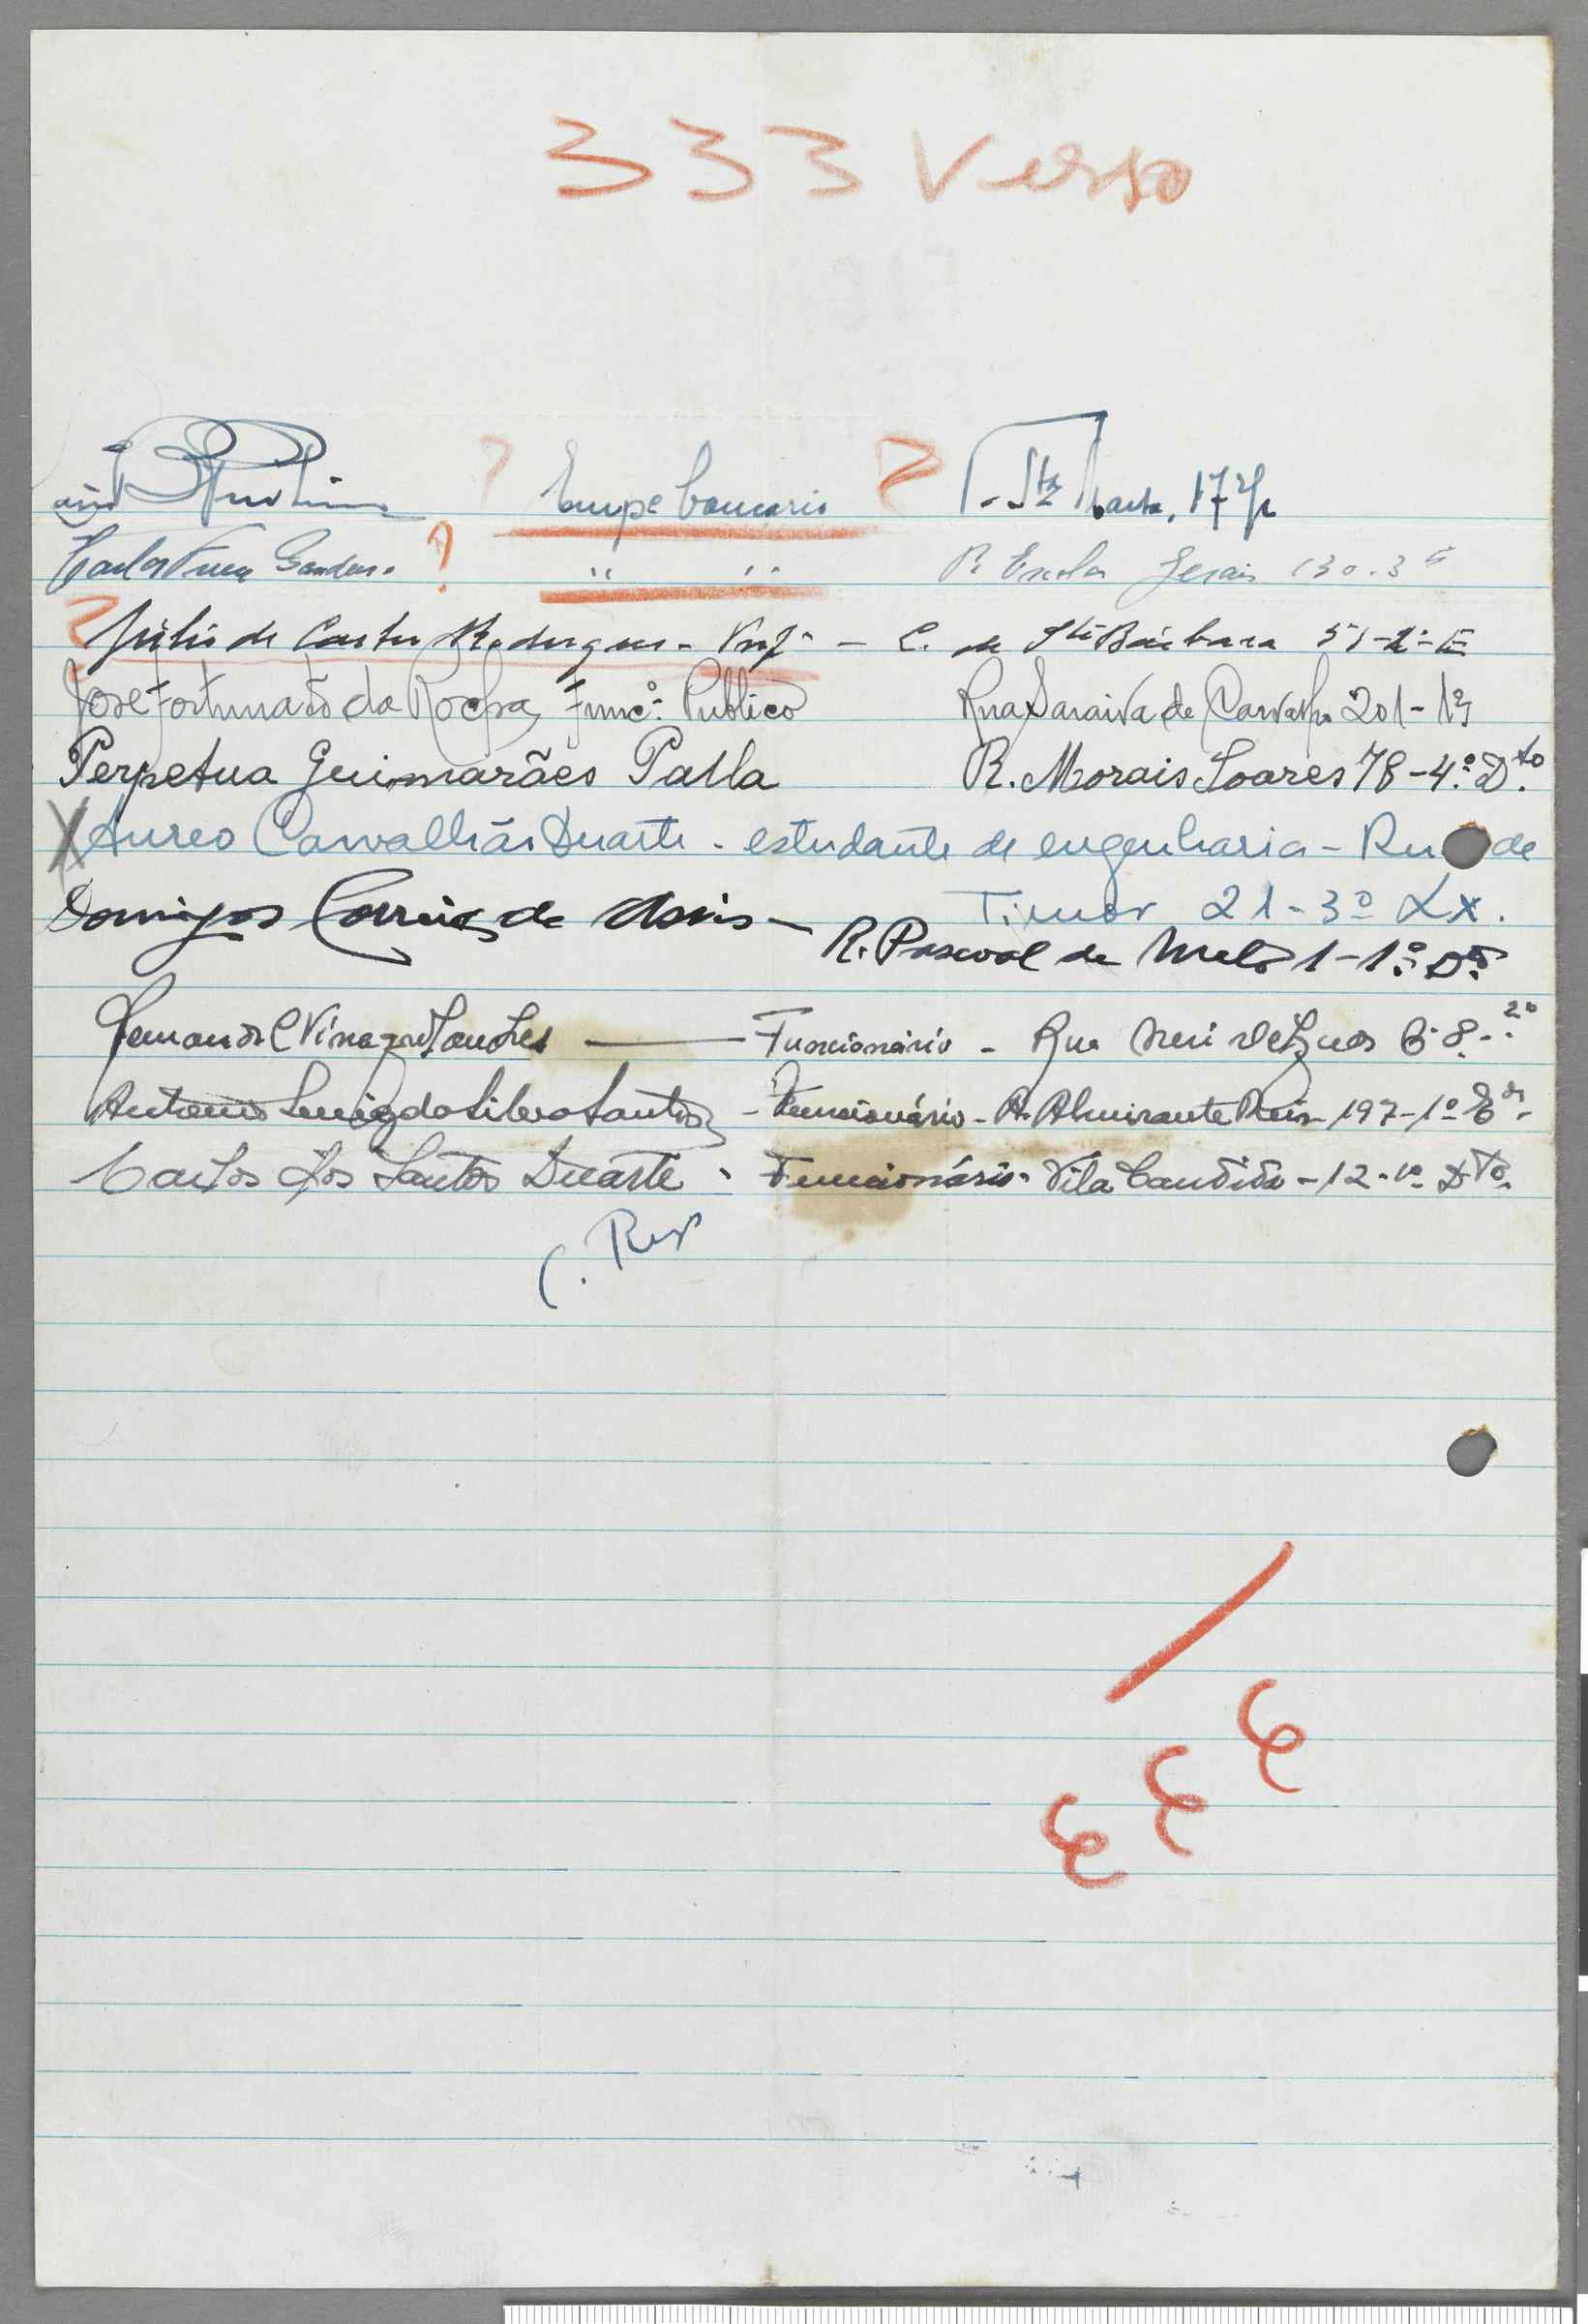 333 Verso
? Empe bancario ? Sta Marta, 17 2º
Carlos ? " " R. Escolas Gerais 130.3º
? Júlio de Castro Rodrigues - Profº - C. de Stª Bárbara 51-2º-E
José Fortunato da Rocha, Funcº. Publico Rua Saraiva de Carvalho 201-1º
Perpetua Guimarães Palla R. Morais Soares 78-4º. Dto.
X Aureo Carvalhão Duarte - estudante de engenharia - Rua de
Timor 21-3º Lx.
Domingos Correia de Assis - R. Pascoal de Melo 1-1º. Dtº
Fernando C Vinagre Sanches — Funcionário - Rua 8-2º
Antonio Luiz da Silva Santos - Funcionário - A. Almirante Reis 197-1º Edº.
Carlos dos Santos Duarte - Funcionário - Vila Candida - 12-1º Dto.
333